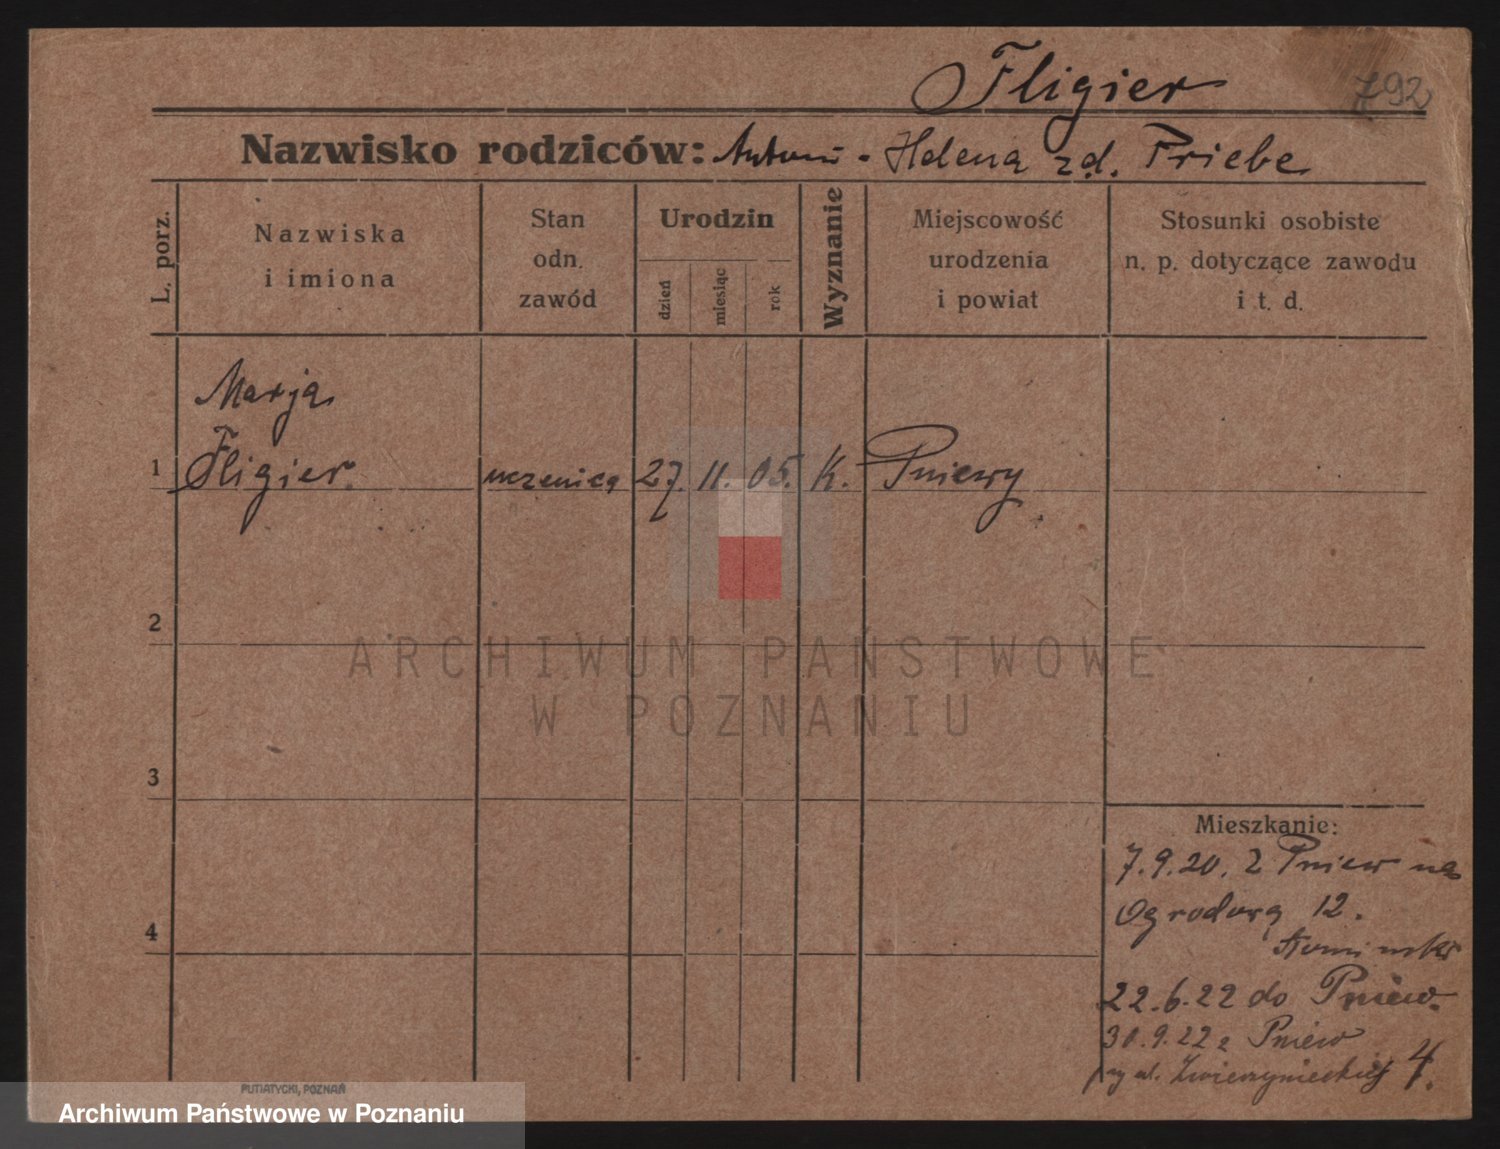 Fligier
792
Nazwisko rodziców: Antoni - Helena zd. Priebe
L. porz.
Nazwiska
i imiona
Stan
odn.
zawód
Urodzin
dzień
miesiąc
rok
Wyznanie
Miejscowość
urodzenia
i powiat
Stosunki osobiste
n. p. dotyczące zawodu
i t. d.
Marja
1 Fligier. uczenica 27. 11. 05. K. Pniewy
2
ARCHIWUM PAŃSTWOWE
W POZNANIU
3
Mieszkanie:
7.9.20. z Pniew na
Ogrodową 12.
4
22.6.22 do Pniew.
30.9.22 z Pniew
przy ul. Zwierzynieckiej 4.
PUTIATYCKI, POZNAŃ
Archiwum Państwowe w Poznaniu